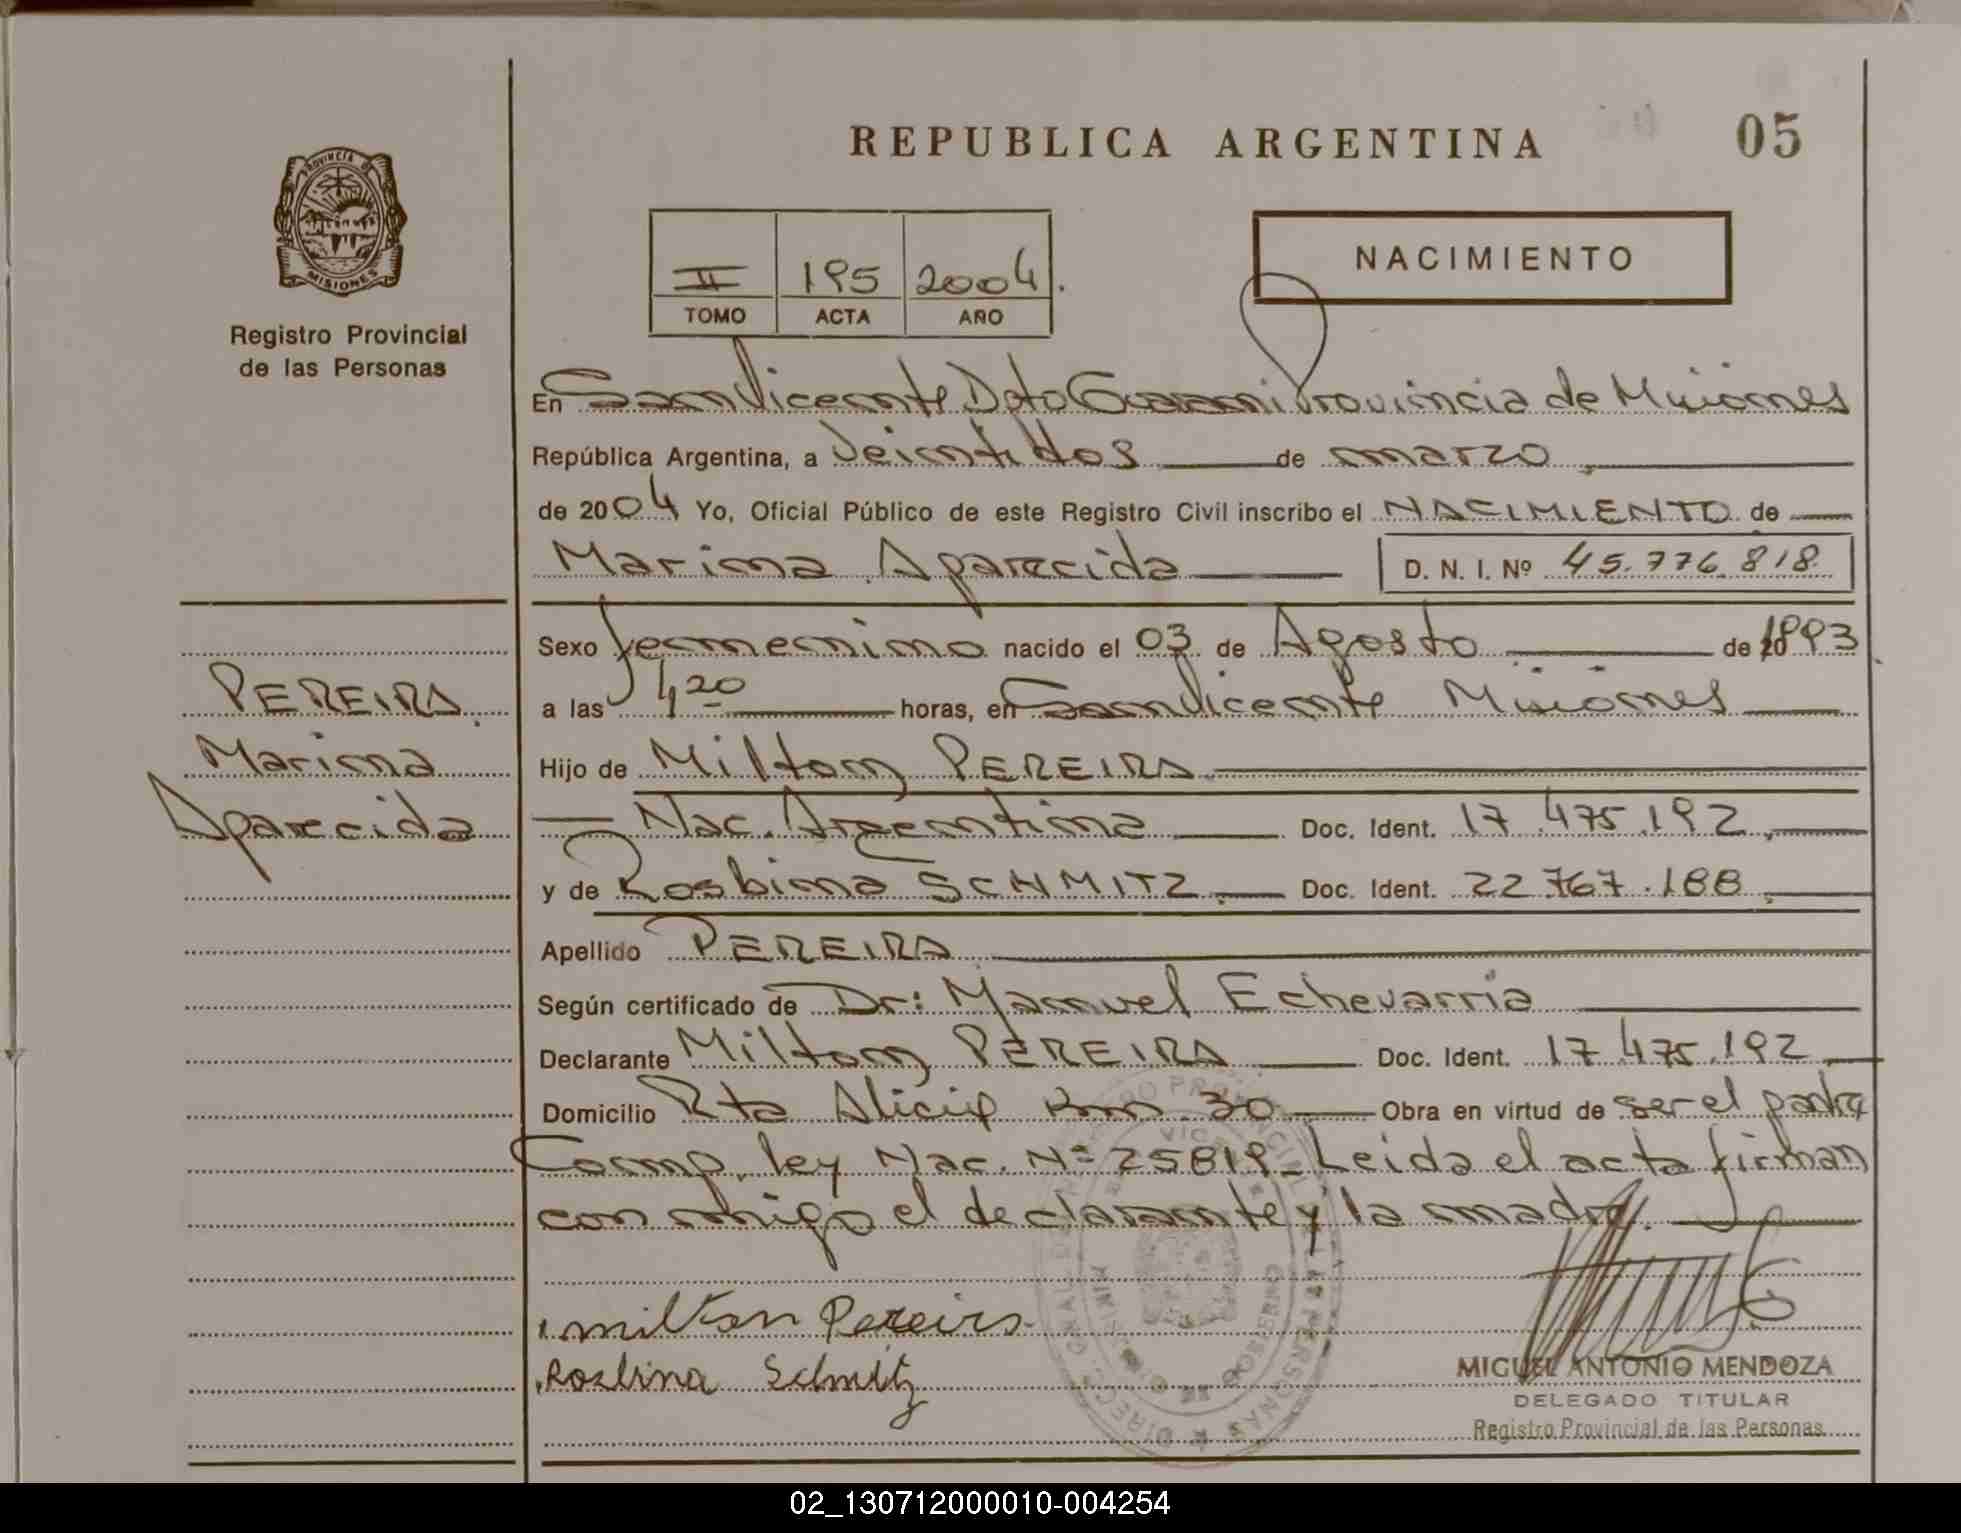 REPUBLICA ARGENTINA
05
PROVINCIA DE
MISIONES
Registro Provincial
de las Personas
II 195 2004.
TOMO ACTA AÑO
NACIMIENTO
En San Vicente Dpto Guarani Provincia de Misiones
República Argentina, a Veintidos de marzo
de 2004 Yo, Oficial Público de este Registro Civil inscribo el NACIMIENTO de
Marina Aparecida D. N. I. Nº 45.776.818
Sexo femenino nacido el 03 de Agosto de 1993
a las 4,20 horas, en San Vicente Misiones
Hijo de Milton PEREIRA
Nac. Argentina Doc. Ident. 17.475.192
y de Rosbina SCHMITZ Doc. Ident. 22.767.188
Apellido PEREIRA
Según certificado de Dr: Manuel Echevarria
Declarante Milton PEREIRA Doc. Ident. 17.475.192
Domicilio Rta Alicia Km 30 Obra en virtud de ser el padre
Comp. ley Nac. Nº 25819_Leida el acta firman
conmigo el declarante y la madre.
PEREIRA
Marina
Aparecida
milton Pereira
Rosbina Schmitz
MIGUEL ANTONIO MENDOZA
DELEGADO TITULAR
Registro Provincial de las Personas
02_130712000010-004254